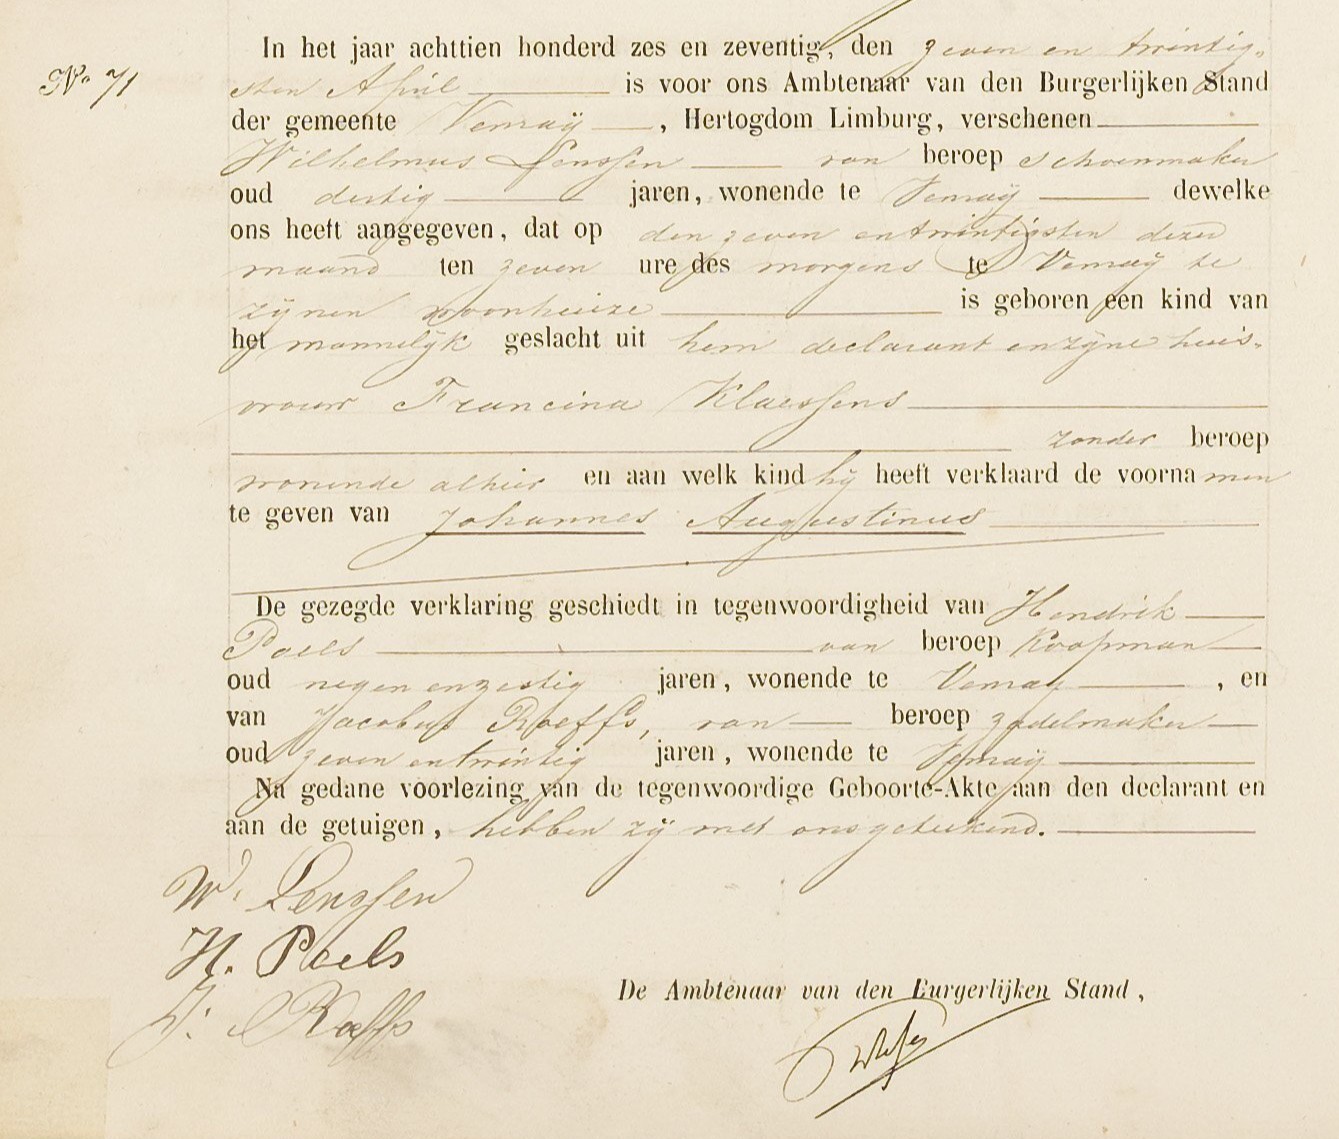 In het jaar achttien honderd zes en zeventig, den zeven en twintig-
No 71
sten April is voor ons Ambtenaar van den Burgerlijken Stand
der gemeente Venraÿ, Hertogdom Limburg, verschenen
Wilhelmus Lenssen van beroep schoenmaker
oud dertig jaren, wonende te Venraÿ dewelke
ons heeft aangegeven, dat op den zeven en twintigsten dezer
maand ten zeven ure des morgens te Venraÿ te
zÿnen woonhuize is geboren een kind van
het mannelÿk geslacht uit hem declarant en zÿne huis-
vrouw Francina Klaessens
zonder beroep
wonende alhier en aan welk kind hÿ heeft verklaard de voornamen
te geven van Johannes Augustinus
De gezegde verklaring geschiedt in tegenwoordigheid van Hendrik
Poels van beroep Koopman
oud negen en zestig jaren, wonende te Venray, en
van Jacobus Roeffs, van beroep zadelmaker
oud zeven en twintig jaren, wonende te Venraÿ
Na gedane voorlezing van de tegenwoordige Geboorte-Akte aan den declarant en
aan de getuigen, hebben zÿ met ons geteekend.
W. Lenssen
H. Poels
J. Roeffs
De Ambtenaar van den Burgerlijken Stand,